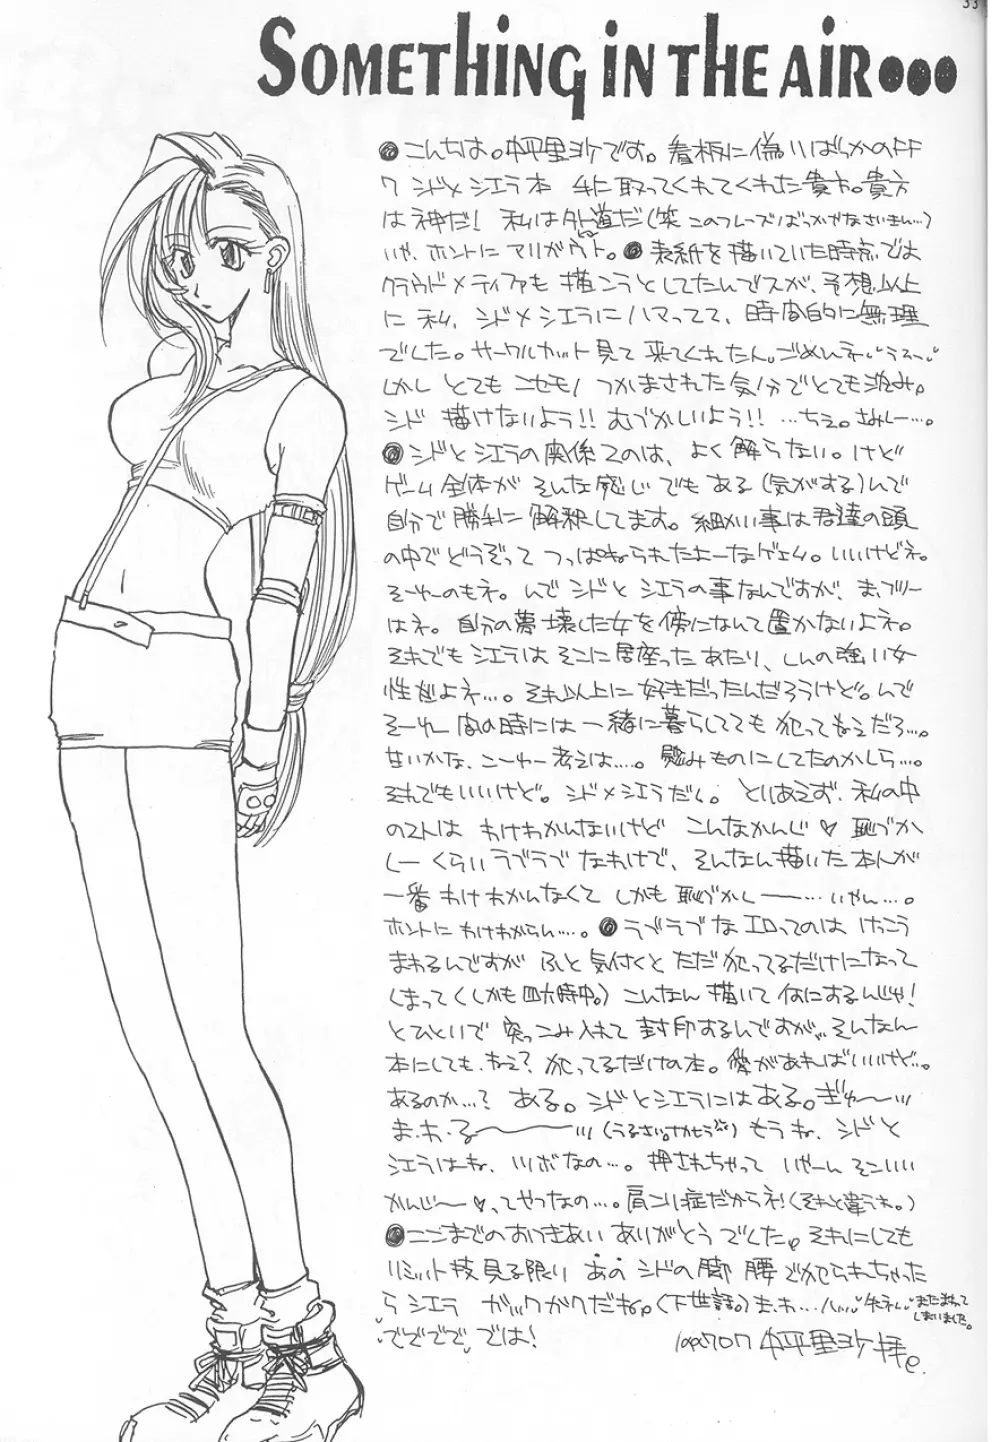 SOMETHING IN THE AIR•••
●こんちは。中平里沙です。看板に偽りばっかのFF
7 シドxシエラ本 手に取ってくれてくれた貴方。貴方
は神だ! 私は外道だ(笑 このフレーズばっかやなさいきん…)
いや、ホントにアリがウト。●表紙を描いていた時点では
クラウドxティファも描こうとしてたんでスが、予想以上
に私、シドxシエラにハマってて、時間的に無理
でした。サークルカット見て来てくれたん。ごめんネ
しかし とても ニセモノ つかまされた気分でとても沈み。
シド 描けないよう!! むづかしいよう!! …ちぇ。さみしー…。
●シドとシエラの関係つのは、よく解らない。けど
ゲーム全体が そんな感じでもある(気がする)んで
自分で勝手に解釈してます。細かい事は君達の頭
の中でどうぞって つっぱねられたよーなゲェム。いいけどネ。
そーゆーのもネ。んで シドとシエラの事なんですが、ま、フツー
はネ。自分の夢壊した女を傍になんて置かないよネ。
それでもシエラはそこに居座ったあたり、しんの強い女
性だよネ…。それ以上に好きだったんだろうけど。んで
そーゆー 間の時には一緒に暮らしてても 犯ってもよネだろ…。
甘いかな、こーゆー考えは…。 慰みものにしてたのかしら…。
それでもいいけど。シドxシエラだし。とりあえず、私の中
のストは わけわかんないけど こんなかんじ♡ 恥づか
しーくらいラブラブ なわけで、そんなん描いた本人が
一番 わけわかんなくて しかも 恥づかしー……いやん…。
ホントに わけわからん…。●ラブラブな エロってのは けっこう
まわるんですが ふと 気付くと ただ 犯ってるだけになって
しまって(しかも四六時中。) こんなん 描いて 何にするんじゃ!
とひといで 突っこみ入れて 封印するんですが… そんなん
本にしても、ねえ? 犯ってるだけの本。愛があればいいけど…。
あるのか…? ある。シドとシエラにはある。ぎゅ〜
ま・わ・る〜 (うるさい。) もうね、シドと
シエラはね、ツボなの…。押されちゃって いやーん そこいい
かんじ〜♡ってやつなの…。肩コリ症だからネ!(それと違うわ。)
●ここまでのおつきあい ありがとう でした。それにしても
リミット技見る限り あの シドの脚 腰 で犯られちゃった
ら シエラ ガックガクだね。(下世話。) ま、わ…ハッ またまわって
しまいました。
でででで、では!
中平里沙 拝